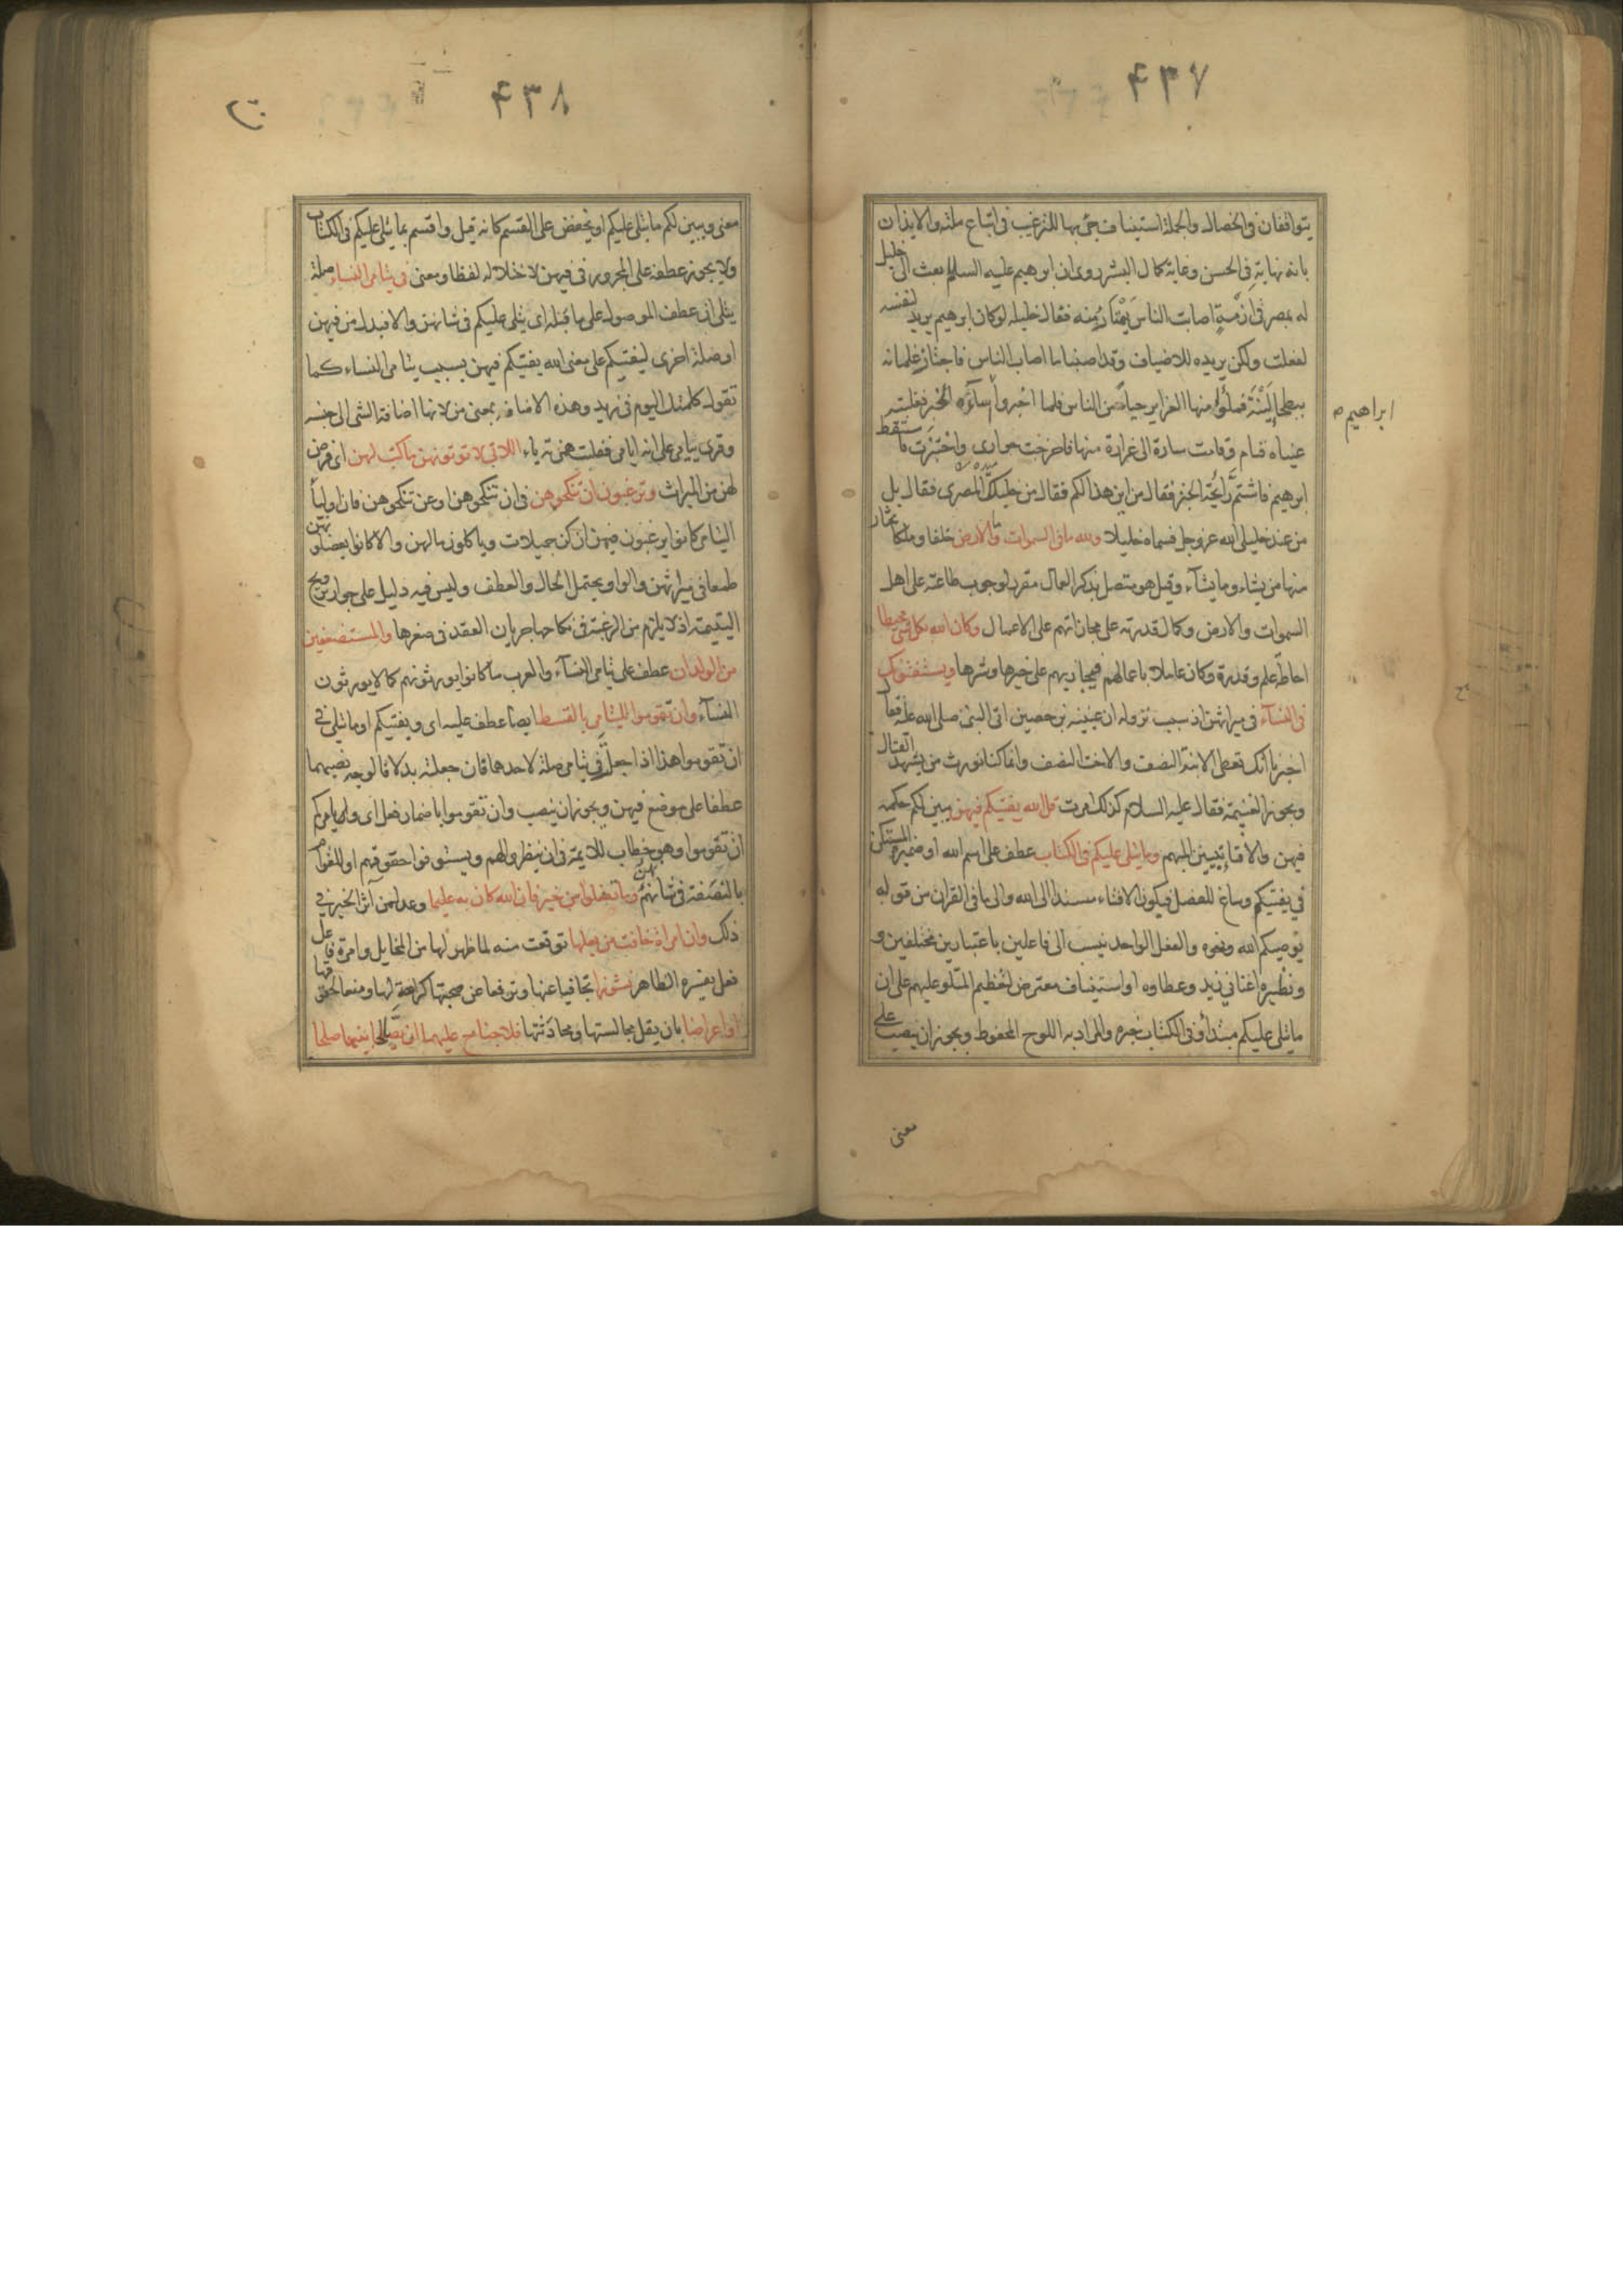 ۴۳۷
يتوافقان فى الخصال والجملة استيناف جئ بها للترغيب فى اتباع ملته والايذان
بانه نهاية فى الحسن وغاية كمال البشر روى ان ابرهيم عليه السلم بعث الى خليل
له بمصر فى ازمة اصابت الناس يمتار منه فقال خليله لو كان ابرهيم يريد لنفسه
لفعلت ولكن يريده للاضياف وقد اصابنا ما اصاب الناس فاجتاز غلمانه
ببطحا لينة فملؤا منها الغراير حياء من الناس فلما اخبروا ساءه الخبر فغلبته
ابراهيم
عيناه فنام وقامت سارة الى غرارة منها فاخرجت حوارى واختبزت فاستيقظ
ابرهيم فاشتم رايحة الخبز فقال من اين هذا لكم فقال من خليلك المصرى فقال بل
من عند خليلى الله عز وجل فسماه خليلا ولله ما فى السموات وما الارض خلقا وملكا يختار
منها من يشاء وما يشآء وقيل هو متصل بذكر العمال مقرر لوجوب طاعته على اهل
السموات والارض وكمال قدرته على مجازاتهم على الاعمال وكان الله بكل شئ محيطا
احاطة علم وقدرة وكان عاملا باعمالهم فيجازيهم على خيرها وشرها ويستفتونك
فى النسآء فى ميراثهن اذ سبب نزوله ان عيينه بن حصين اتى النبى صلى الله عليه فقال
اخبرنا انك تعطى الابنة النصف والاخت النصف وانما كنا نورث من يشهد القتال
ويجوز الغنيمة فقال عليه السلام كذلك امرت قل الله يفتيكم فيهن يبين لكم حكمه
فيهن والافتاء تبيين المبهم وما يتلى عليكم فى الكتاب عطف على اسم الله او ضميره المستكن
فى يفتيكم وساغ للفصل فيكون الافتاء مسندا الى الله والى ما فى القران من قوله
يوصيكم الله ونحوه والفعل الواحد ينسب الى فاعلين باعتبارين مختلفين و
ونظيره اغنانى زيد وعطاوه او استيناف معترض لتعظيم المتلو عليهم على ان
ما يتلى عليكم مبتدأ وفى الكتاب خبره والمراد به اللوح المحفوظ ويجوز ان ينصب على
معنى
۴۳۸
معنى ويبين لكم ما يتلى عليكم او يخفض على القسم كانه قيل واقسم بما يتلى عليكم فى الكتاب
ولا يجوز عطفه على المجرور فى فيهن لاختلاله لفظا ومعنى فى يتامى النساء صلة
يتلى ان عطف الموصول على ما قبله اى يتلى عليكم فى شانهن والا فبدل من فيهن
او صلة اخرى ليفتيكم على معنى الله يفتيكم فيهن بسبب يتامى النساء كما
تقول كلمتك اليوم فى زيد وهذه الاضافه بمعنى من لانها اضافة الشى الى جنسه
وقرى ييامى على انه ايامى فقلبت همزته ياء اللاتى لا توتونهن ما كتب لهن اى فرض
لهن من الميراث وترغبون ان تنكحوهن فى ان تنكحوهن او عن تنكحوهن فان اوليآ
اليتامى كانوا يرغبون فيهن ان كن جميلات وياكلون مالهن والا كانوا يعضلونهن
طمعا فى ميراثهن والواو يحتمل الحال والعطف وليس فيه دليل على جواز تزويج
اليتيمة اذ لا يلزم من الرغبة فى نكاحها جريان العقد فى صغرها والمستضعفين
من الولدان عطف على يتامى النسآء والعرب ما كانوا يورثونهم كما لا يورثون
النسآء وان تقوموا لليتامى بالقسط ايضا عطف عليه اى ويفتيكم او ما يتلى فى
ان تقوموا هذا اذا جعل فى يتامى صلة لاحدهما فان جعلته بدلا فالوجه نصبهما
عطفا على موضع فيهن ويجوز ان ينصب وان تقوموا باضمار فعل اى ويامركم
ان تقوموا وهو خطاب للايمة فى ان ينظروا لهم ويستوفوا حقوقهم او للقوام
بالنصفة فى شانهم وما تفعلوا من خير فان الله كان به عليما وعد لمن آثر الخير فى
ذلك وان امراة خافت من بعلها توقعت منه لما ظهر لها من المخايل وامرة فاعل
فعل يفسره الظاهر نشوزا تجافيا عنها وترفعا عن صحبتها كراهة لها ومنعا لحقوقها
او اعراضا بان يقل مجالستها ومحادثتها فلا جناح عليهما ان يصالحا بينهما صلحا